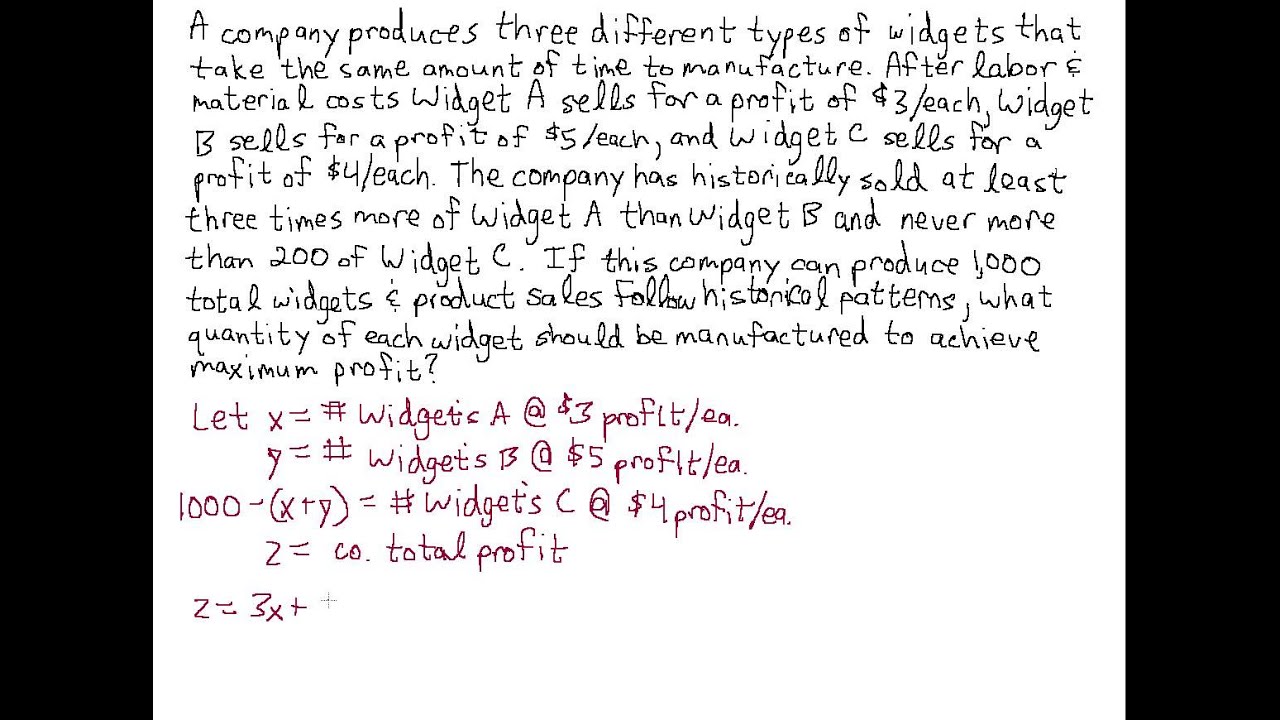 A company produces three different types of widgets that
take the same amount of time to manufacture. After labor &
material costs Widget A sells for a profit of $3/each, Widget
B sells for a profit of $5/each, and Widget C sells for a
profit of $4/each. The company has historically sold at least
three times more of Widget A than Widget B and never more
than 200 of Widget C. If this company can produce 1,000
total widgets & product sales follow historical patterns, what
quantity of each widget should be manufactured to achieve
maximum profit?
Let x = # Widget's A @ $3 profit/ea.
y = # Widget's B @ $5 profit/ea.
1000 - (x+y) = # Widget's C @ $4 profit/ea.
z = co. total profit
z = 3x +